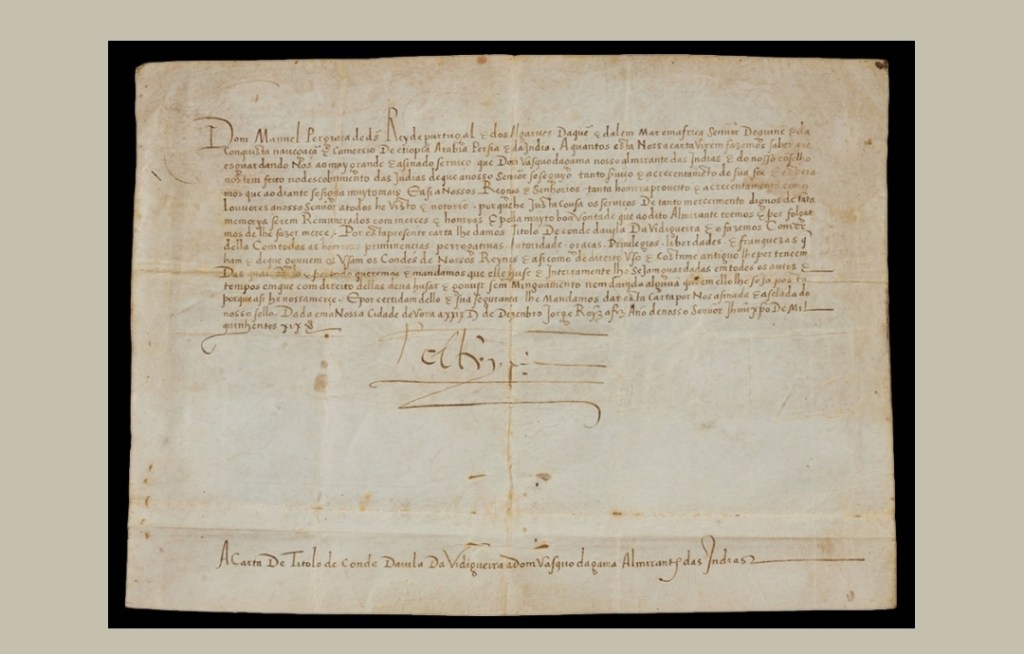 Dom Manuel Per graça de ds Rey de purtugal & dos Algarues Daque & dalem Mar em africa Senhor De guine & da
Conquista nauegaçã & Comercio De etiopia Arabia Persia & da India. A quantos esta Nossa carta Virem fazemos saber que
esguardando Nos ao muy grande & asinado seruico que Dom Vasquo dagama nosso almirante das Indias & do nosso cõselho
nos tem feito no descobrimento das Indias de que anosso Senhor se seguyo tanto & acrecentamento de sua fee &
mos que ao diante se siga muyto mais E asi a Nossos Reynos & Senhorios tanta homrra proueito & acrecentamento com
louuores a nosso Senhor a todos he Visto & notorio. por que he Justa cousa os seruicos De tanto merecimento dignos de tãta
memorya serem Remunerados com merces & homras E pella muyto boa Vontade que ao dito Almirante teemos & por folgar
mos de lhe fazer merce. Por esta presente carta lhe damos Titolo De conde da uila Da Vidigueira & o fazemos Conde
della Com todas as homras priminencias perrogatiuas Autoridade gracas Priuilegios liberdades & franquezas q
ham & de que gouuem os Condes de Nossos Reynos & asi como de direito Vso & Costume antiguo lhe pertencem
Das quaes queremos & mandamos que elle huse & Inteiramente lhe Sejam guardadas em todos os autos &
tempos em que com direito dellas deua husar & gouuir sem Mingoamento nem duuida alguũa que em ello lhe seja posta
porque asi he nossa merce. E por certidam dello & sua seguranca lhe Mandamos dar esta Carta por Nos asinada & aselada do
nosso sello. Dada em a Nossa Cidade de uora a xxix D de Dezenbro Jorge Royz a fez Ano de nosso Senhor Jhuũ xpõ De Mil
quinhentos xix
A Carta De Titolo de Conde Dauila Da Vidigueira a Dom Vasquo dagama Almirante das Indias